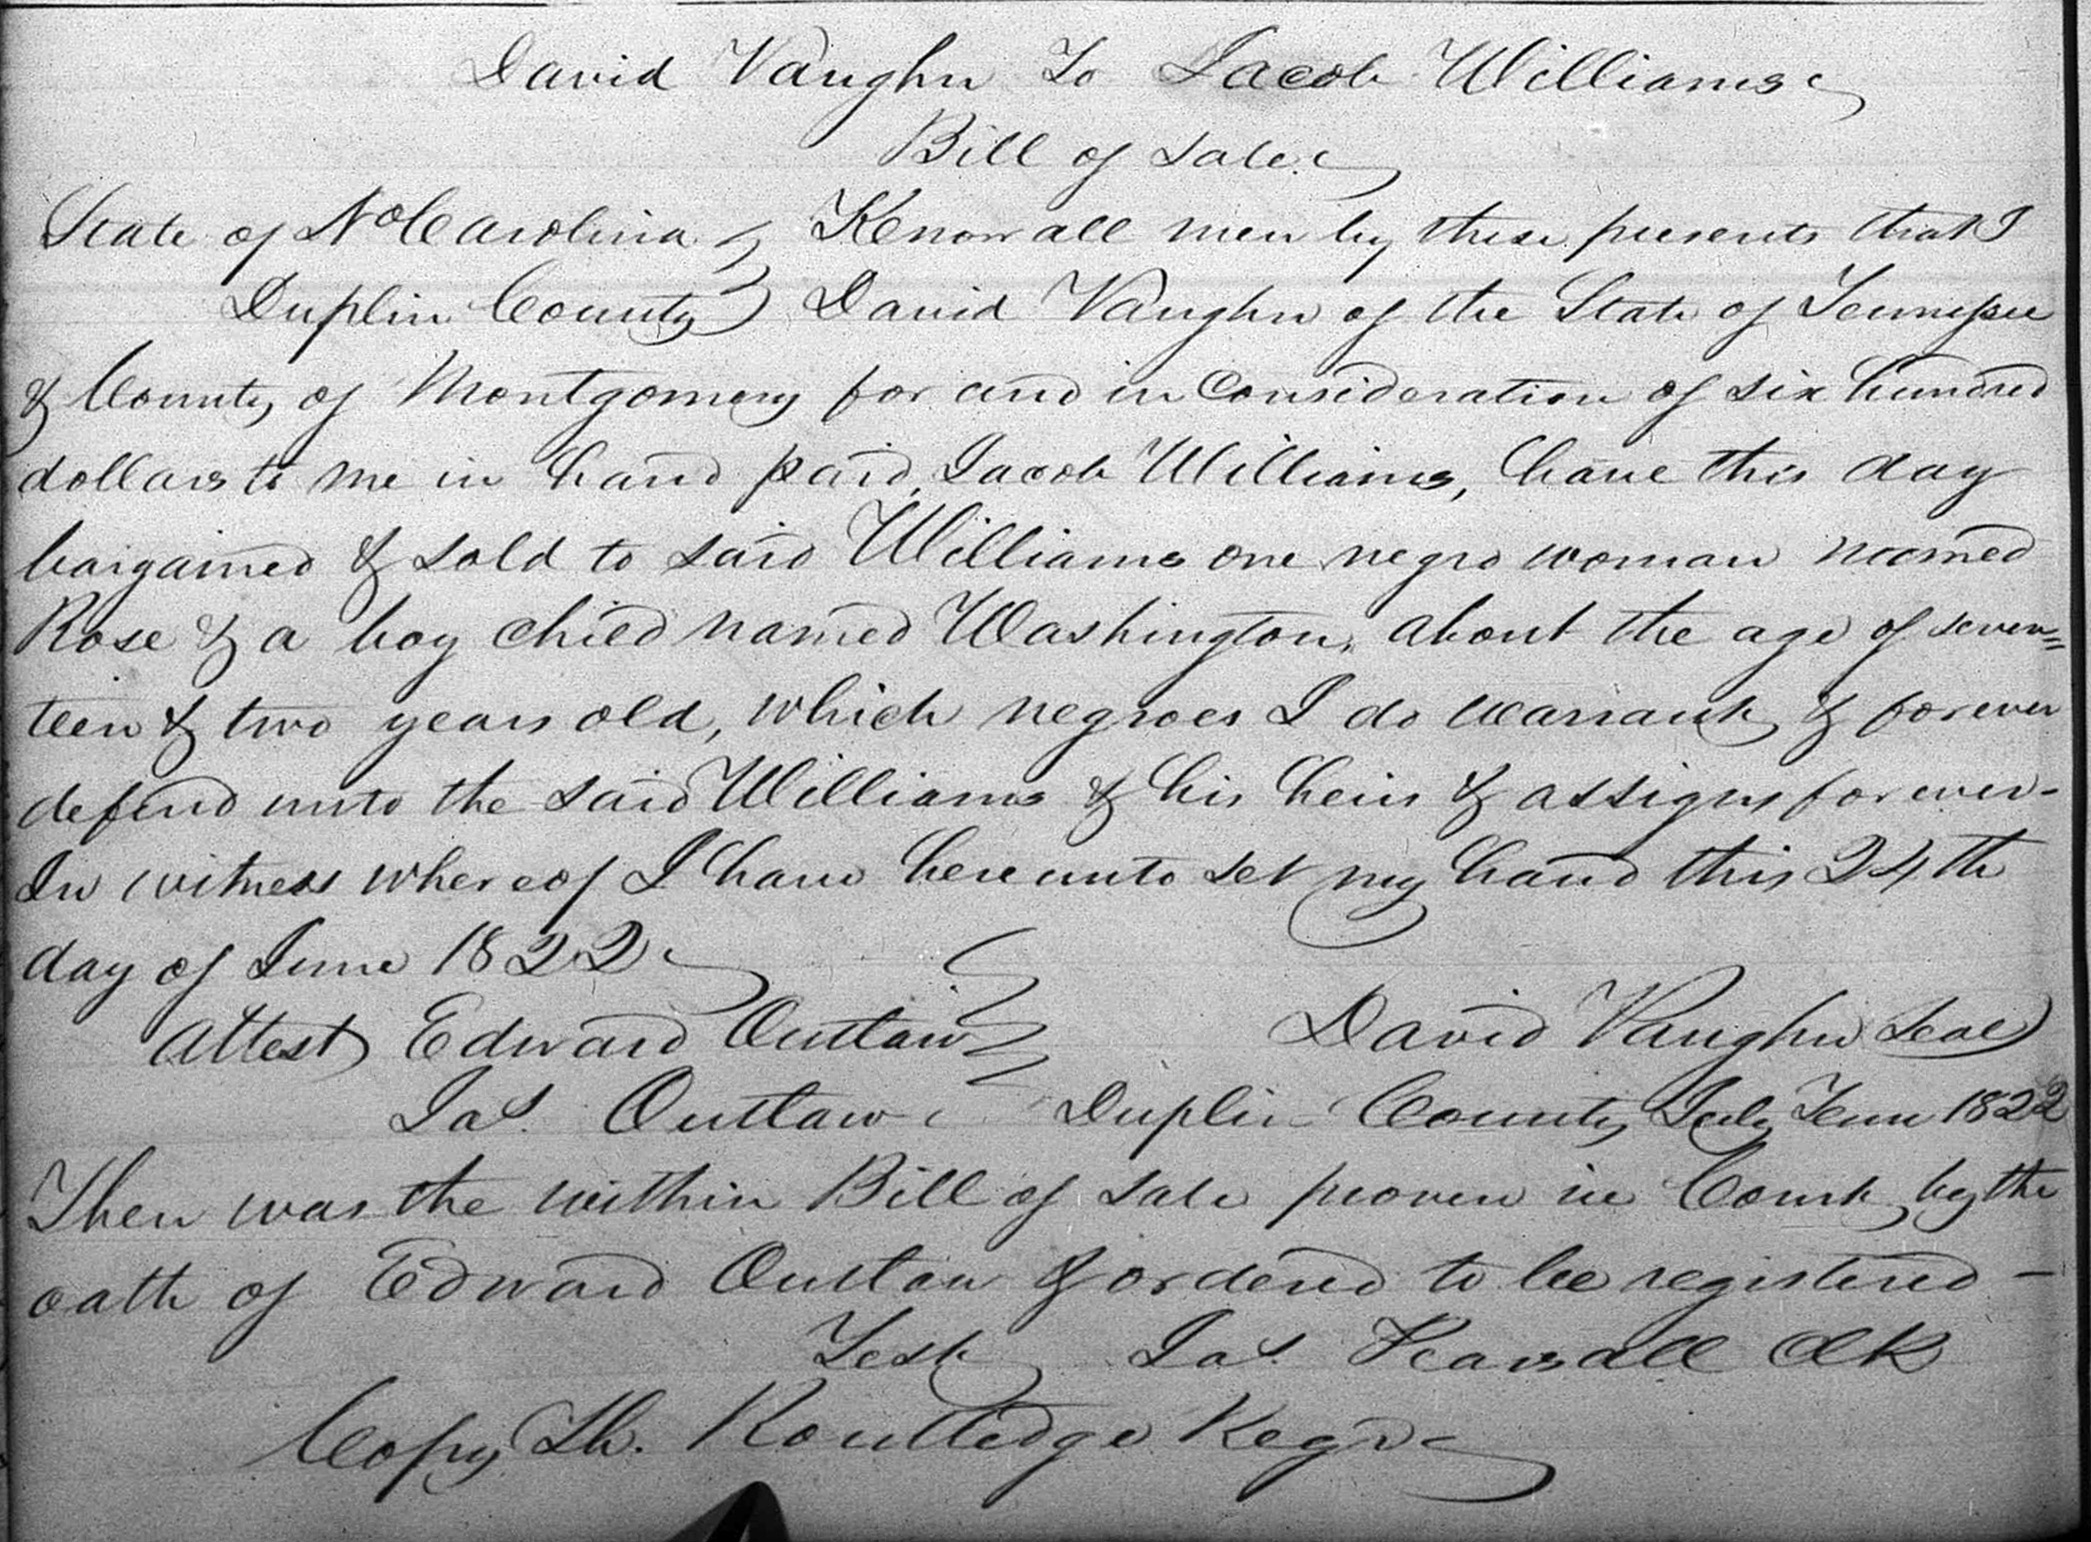 David Vaughn To Jacob Williams
Bill of Sale
State of No Carolina } Know all men by these presents that I
Duplin County } David Vaughn of the State of Tennessee
& County of Montgomery for and in Consideration of six hundred
dollars to me in hand paid, Jacob Williams, have this day
bargained & sold to said Williams one negro woman named
Rose & a boy child named Washington, about the age of seven=
teen & two years old, which negroes I do warrant & forever
defend unto the said Williams & his heirs & assigns forever-
In witness whereof I have here unto set my hand this 24th
day of June 1822
Attest Edward Outlaw David Vaughn Seal
Jas. Outlaw Duplin County July Term 1822
Then was the within Bill of Sale proven in Court by the
oath of Edward Outlaw & ordered to be registered -
Test Jas. Pearsall Clk
Copy Th. Routledge Regr